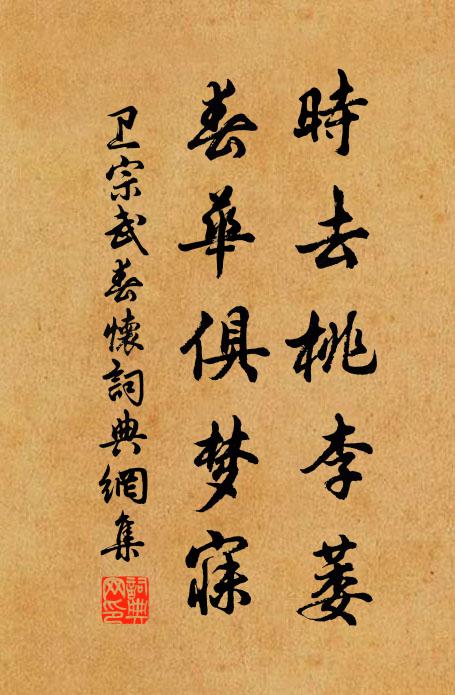 時去桃李萎
春華俱梦寐
卫宗武春懷詞典網集
詞典网印